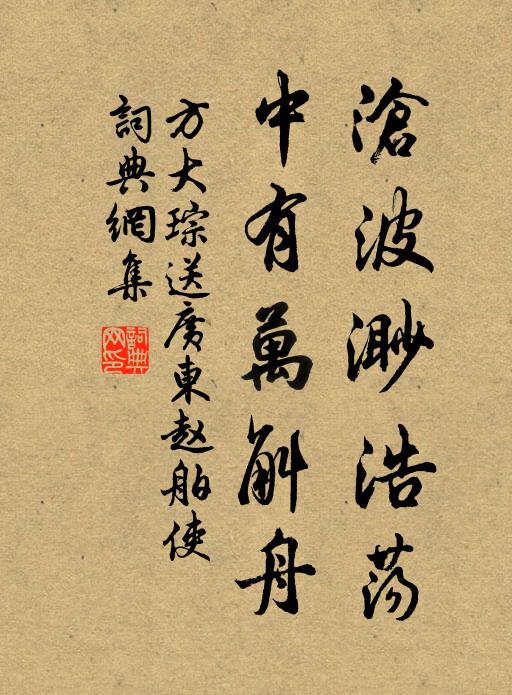 滄波渺浩荡
中有萬斛舟
方大琮送廣東赵舶使
詞典網集
詞典网印